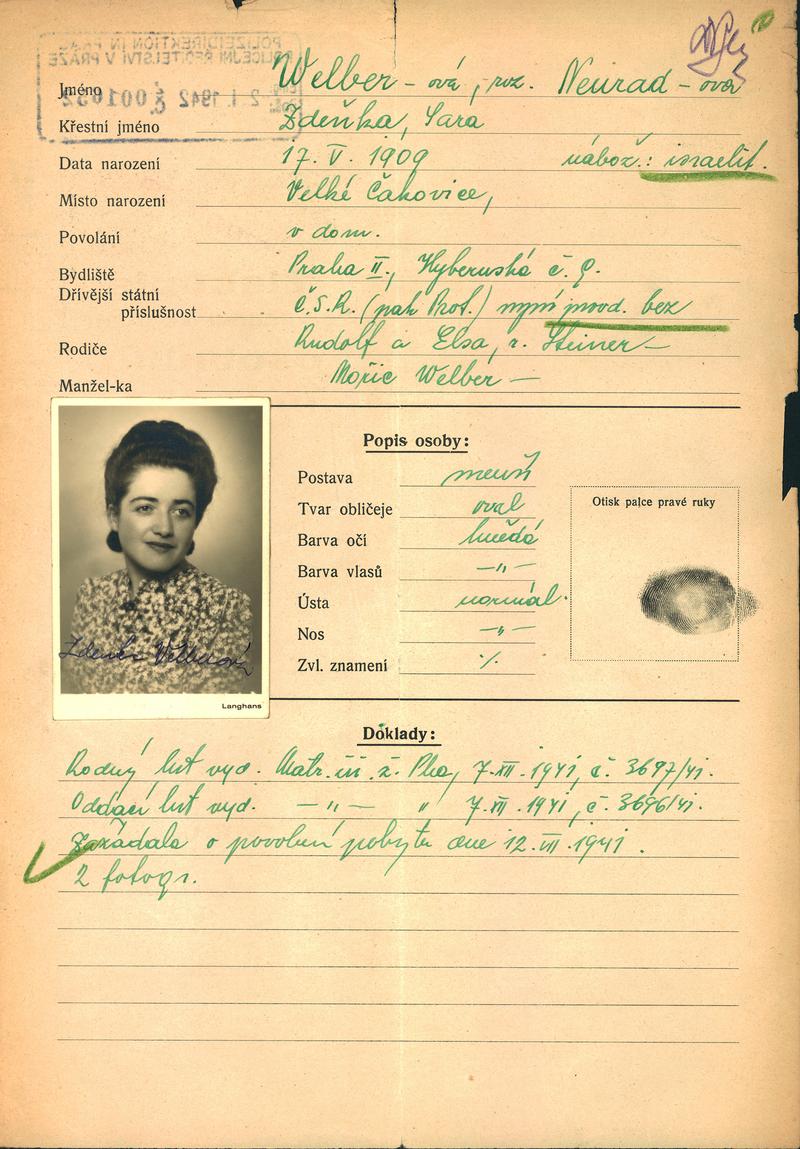 POLIZEIDIREKTION IN PRAG
POLICEJNÍ ŘEDITELSTVÍ V PRAZE
2. I. 1942 č 001052
Jméno Welber - ová, roz. Neurad - ová
Křestní jméno Zdeňka, Sara
Data narození 17. V. 1909 nábož.: israelit.
Místo narození Velké Čakovice,
Povolání v dom.
Bydliště Praha II., Hybernská č. 9.
Dřívější státní
příslušnost Č.S.R. (pak Prot.) nyní bez
Rodiče Rudolf a Elsa, r. Steiner —
Manžel-ka Mořic Welber —
Popis osoby:
Postava menší
Tvar obličeje oval
Barva očí hnědá
Barva vlasů —"—
Ústa normál.
Nos —"—
Zvl. znamení ./.
Otisk palce pravé ruky
Zdeňka Welberová
Langhans
Doklady:
Rodný list vyd. Matr. ž. Pha, 7. XII. 1941, č. 3697/41.
Oddací list vyd. —"— " 7. XII. 1941, č. 3696/41.
Zažádala o povolení pobytu dne 12. 1941.
2 fotogr.